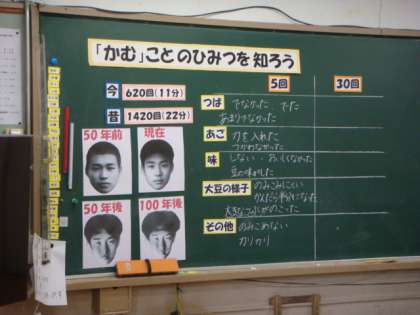 「かむ」ことのひみつを知ろう
今 620回(11分)
昔 1420回(22分)
50年前 現在
50年後 100年後
5回 30回
つば でなかった でた
あまりでなかった
あご 力を入れた
つかわなかった
味 しない・おいしくなかった
豆の味がした
大豆の様子 のみこみにくい
かんだら半分になった
大きなつぶがのこった
その他 のみこめない
カリカリ